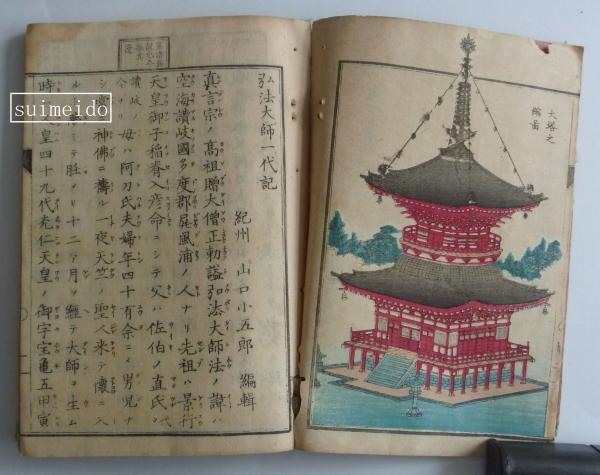 大塔之
縮畧
弘法大師一代記
紀州 山口小五郎 編輯
真言宗ノ高祖贈大僧正勅謚弘法大師法ノ諱ハ
空海讃岐國多度郡屏風浦ノ人ナリ先祖ハ景行
天皇御子稲脊入彦命ニシテ父ハ佐伯ノ直氏代
讃岐ノ
今ナリ母ハ阿刀氏夫婦年四十有余ニ男児ナ
シ
神佛ニ禱ル一夜天竺ノ聖人来テ懐ニ入
ルヲ
ミテ
十二ヶ月ヲ
テ大師ヲ生ム
時
皇四十九代光仁天皇ノ御宇宝亀五甲寅
suimeido